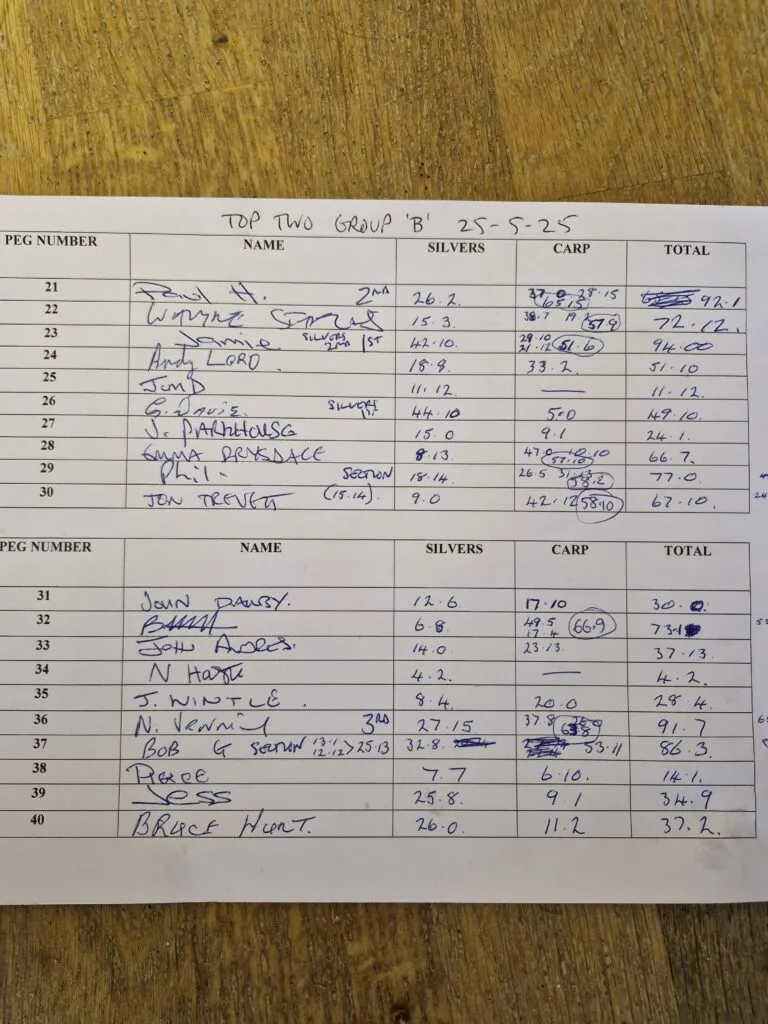 TOP TWO GROUP 'B' 25-5-25
PEG NUMBER NAME SILVERS CARP TOTAL
21 Paul H. 2ND 26.2. 37.0 28.15 65.15 92.1
22 WAYNE 15.3. 38.7 19.2 57.9 72.12.
23 Jamie SILVERS 2ND 1ST 42.10. 29.10 21.12 51.6 94.00
24 Andy LORD. 18.8. 33.2. 51.10
25 Jim D 11.12. — 11.12.
26 G. Davis. SILVERS 1ST 44.10 5.0 49.10.
27 J. PARKHOUSE 15.0 9.1 24.1.
28 EMMA DRYSDALE 8.13. 47.0 10.10 57.10 66.7.
29 Phil. SECTION 18.14. 26.5 31.13 58.2 77.0.
30 JON TREVETT (15.14). 9.0 42.12 58.10 67.10.
PEG NUMBER NAME SILVERS CARP TOTAL
31 JOHN DANBY. 12.6. 17.10 30.0.
32 6.8. 49.5 17.4 66.9 73.1
33 JOHN 14.0. 23.13. 37.13.
34 N 4.2. — 4.2.
35 J. WINTLE. 8.4. 20.0 28.4.
36 N. 3RD 27.15 37.8 91.7
37 BOB G SECTION 13.1 12.12 > 25.13 32.8. 53.11 86.3.
38 7.7 6.10. 14.1.
39 Jess 25.8. 9.1 34.9
40 BRUCE HUNT. 26.0. 11.2 37.2.